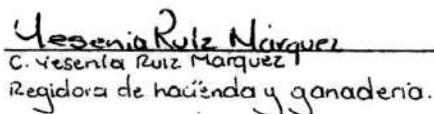 Yesenia Ruiz Márquez
C. Yesenia Ruiz Márquez
Regidora de haciénda y ganaderia.